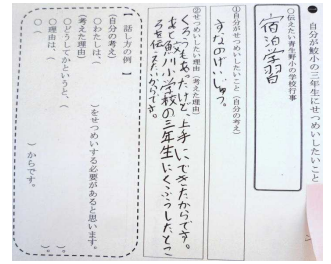 一 自分が鮫川小の三年生にせつめいしたいこと
○伝えたい青生野小の学校行事
宿泊学習
①自分がせつめいしたいこと（自分の考え）
すなのげいじゅつ。
②せつめいしたい理由（考えた理由）
くろうしたけど、上手にできたからです。
あと鮫川小学校の三年生にくふうしたとこ
ろを伝えたいからです。
【話し方の例】
（自分の考え）
○わたしは、（　）をせつめいする必要があると思います。
（考えた理由）
○どうしてかというと、（　）。
○理由は、（　）からです。